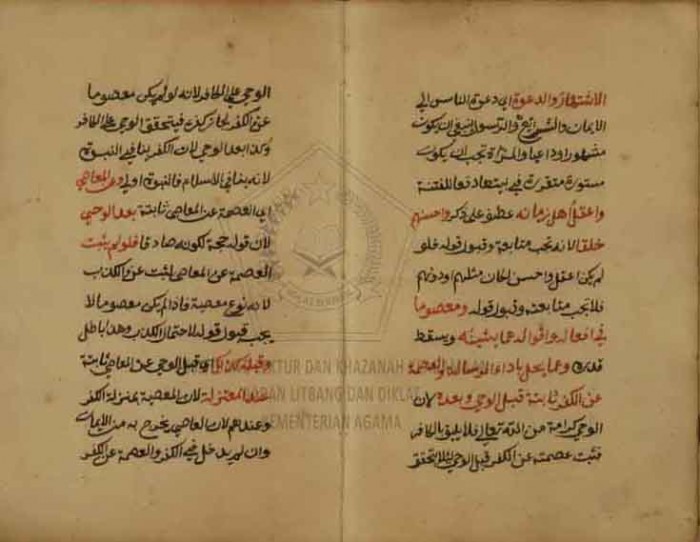 الاشتهار والدعوة اي دعوة الناس الى
الايمان والشرايع والرسول النبي ان يكون
مشهورا وداعيا والمرأة تجب ان يكون
مستورة متقررة في بيتها دفعا للفتنة
واعقل اهل زمانه عطف على ذكر واحسنهم
خلقا لانه تجب متابعة وقبول قوله فلو
لم يكن اعقل واحسن لكان مثلهم او دونهم
فلا يجب متابعته وقبول قوله ومعصوما
في افعاله واقواله عما يشينه ويسقط
قدره وعما يخل باداء الرسالة والعصمة
عن الكفر ثابتة قبل الوحي وبعده لان
الوحي كرامة من الله تعالى فلا يليق بالكافر
فثبت عصمته عن الكفر قبل الوحي لئلا يتحقق
الوحي على الكافر لانه لو لم يكن معصوما
عن الكفر لجاز كفره فيتحقق الوحي على الكافر
وكذا بعد الوحي لان الكفر ينافي النبوة
لانه ينافي الاسلام فالنبوة اولى وعن المعاصي
اي العصمة عن المعاصي ثابتة بعد الوحي
لان قوله حجة لكونه صادقا فلو لم يثبت
العصمة عن المعاصي لم يثبت عن الكذب
لانه نوع معصية فاذا لم يكن معصوما لا
يجب قبول قوله لاحتمال الكذب وهذا باطل
وقبله كذلك اي قبل الوحي عن المعاصي ثابتة
عند المعتزلة لان المعصية بمنزلة الكفر
وعندهم لان العاصي يخرج به من الايمان
وان لم يدخل في الكفر والعصمة عن الكفر
PUSLITBANG LEKTUR DAN KHAZANAH KEAGAMAAN
BADAN LITBANG DAN DIKLAT
KEMENTERIAN AGAMA